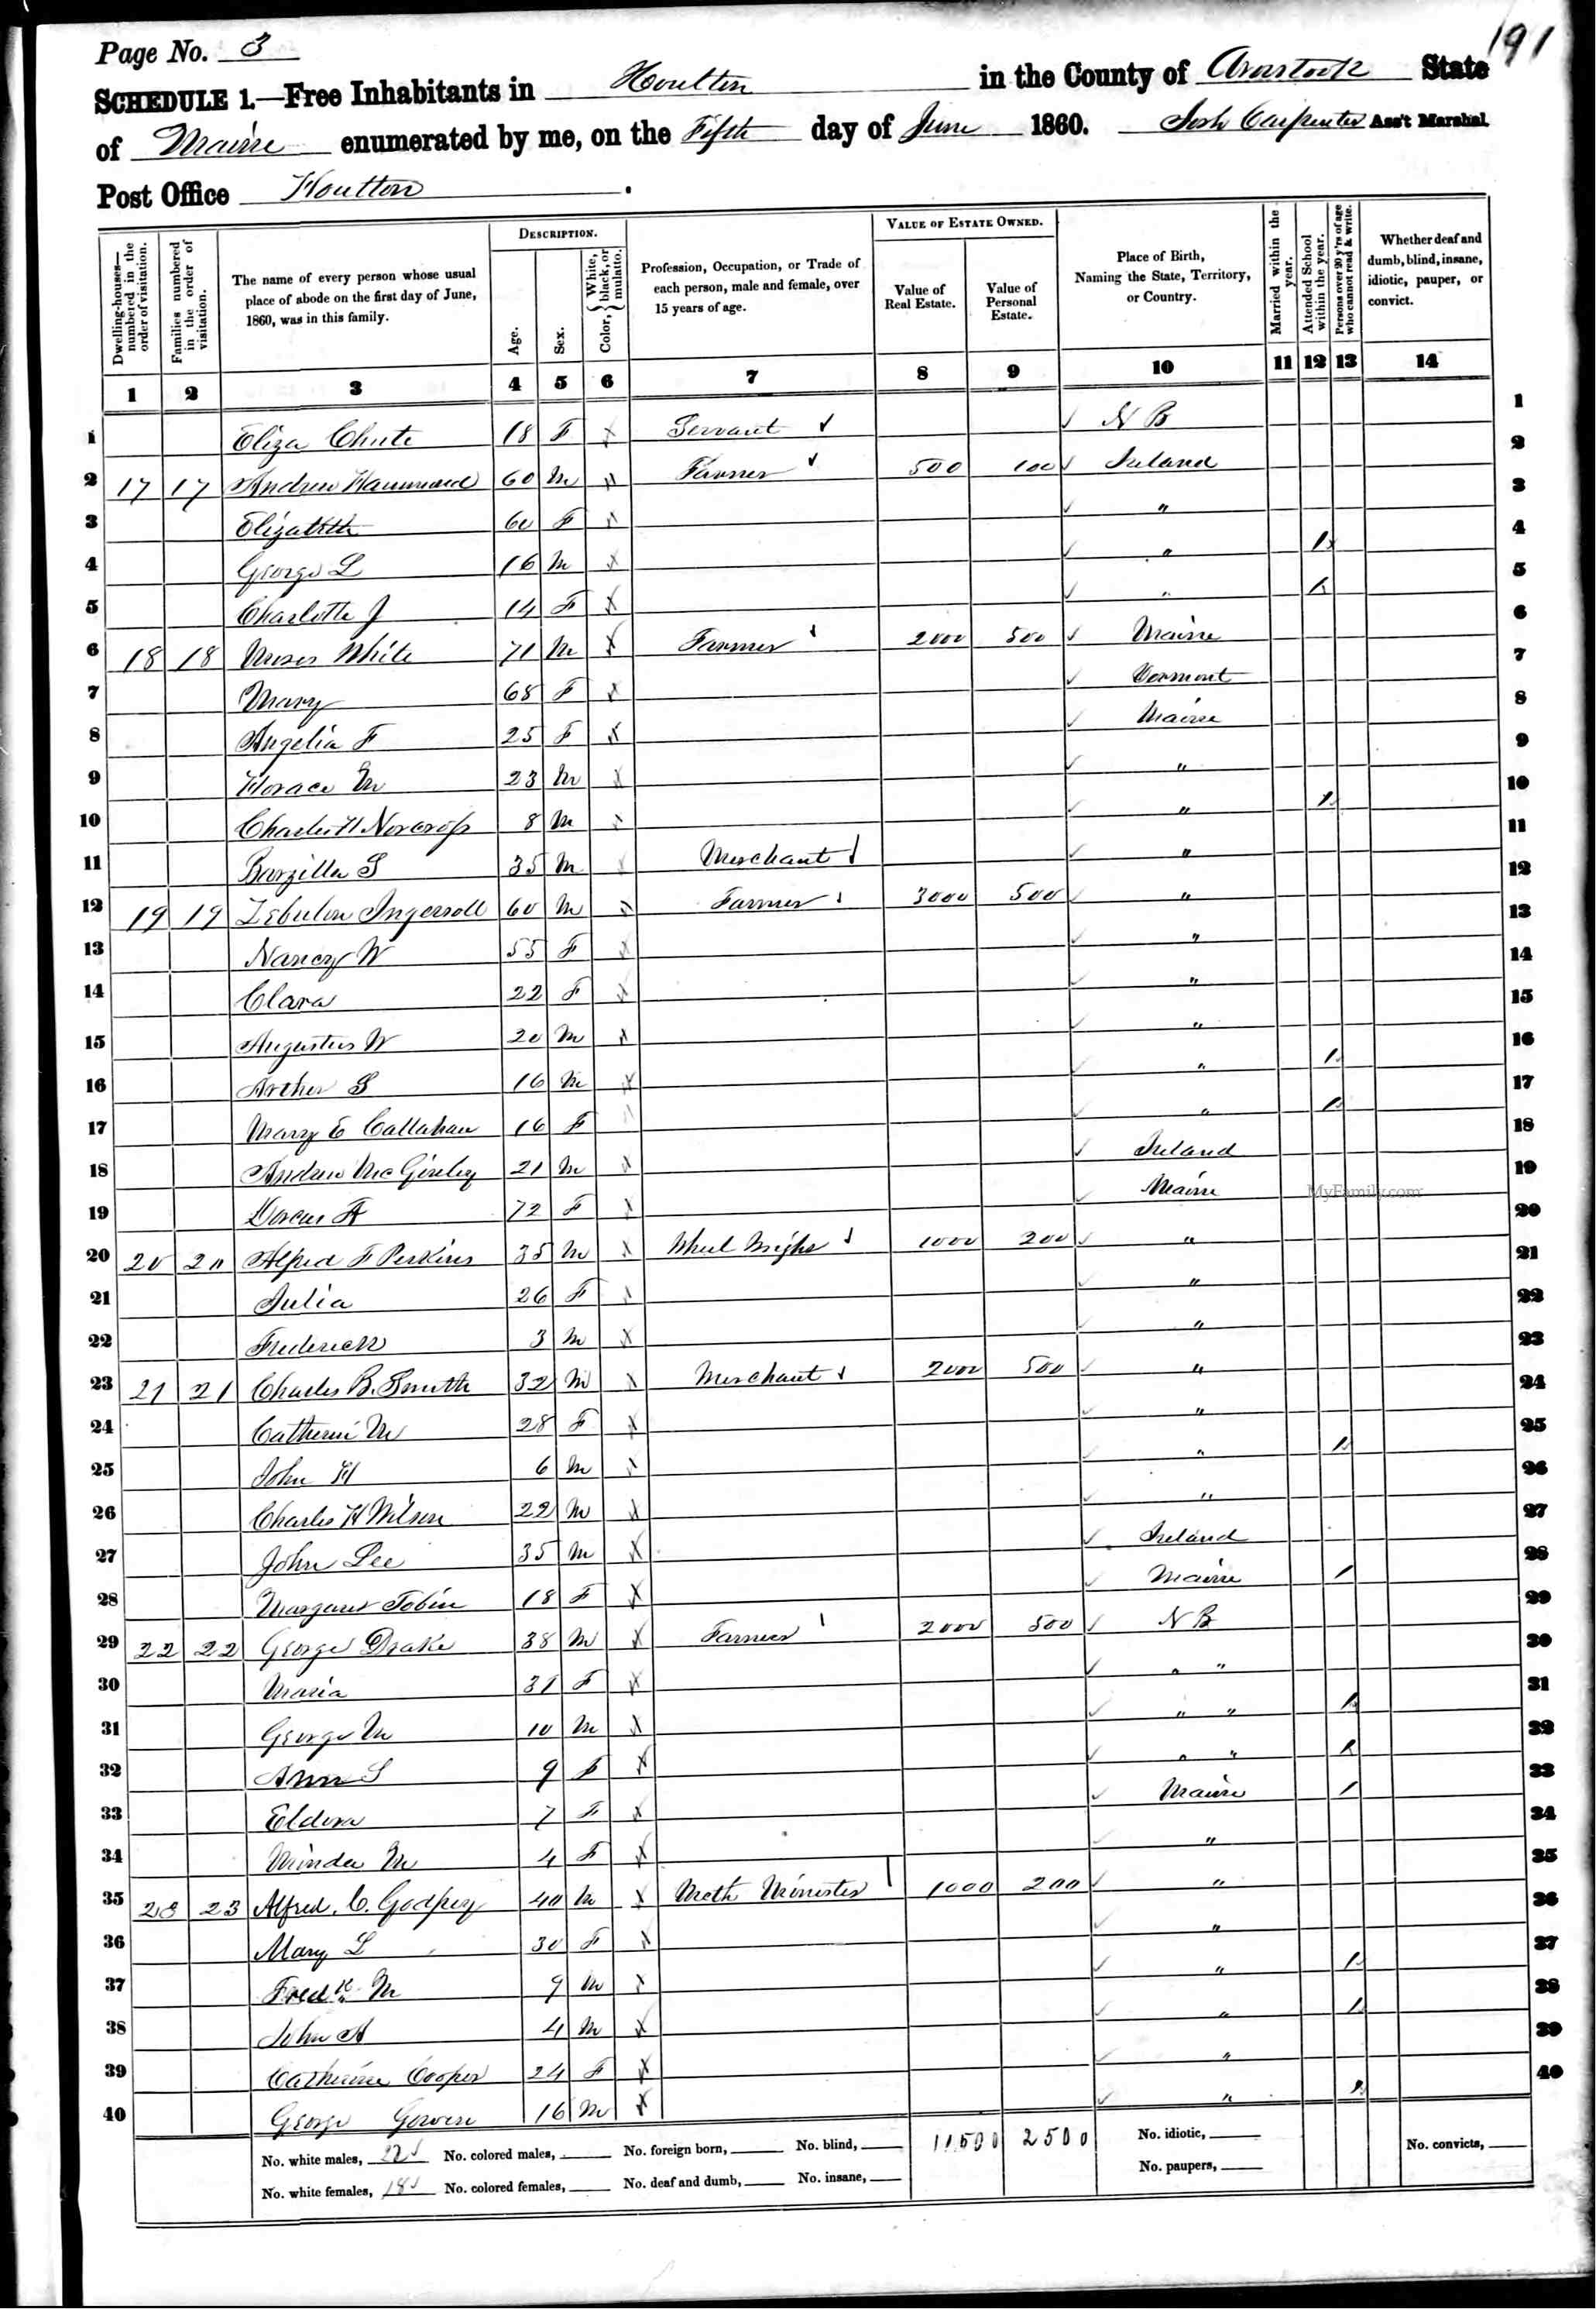 191
Page No. 3
SCHEDULE 1.—Free Inhabitants in Houlton in the County of Aroostook State
of Maine enumerated by me, on the Fifth day of June 1860. Carpenter Ass't Marshal.
Post Office Houlton.
Dwelling-houses—numbered in the order of visitation. Families numbered in the order of visitation. The name of every person whose usual place of abode on the first day of June, 1860, was in this family. DESCRIPTION. Age. Sex. Color, White, black, or mulatto. Profession, Occupation, or Trade of each person, male and female, over 15 years of age. VALUE OF ESTATE OWNED. Value of Real Estate. Value of Personal Estate. Place of Birth, Naming the State, Territory, or Country. Married within the year. Attended School within the year. Persons over 20 y'rs of age who cannot read & write. Whether deaf and dumb, blind, insane, idiotic, pauper, or convict.
1 2 3 4 5 6 7 8 9 10 11 12 13 14
1 Eliza Chute 18 F Servant N B 1
2 17 17 Andrew Hammond 60 M Farmer 500 100 Ireland 2
3 Elizabeth 60 F " 3
4 George L 16 M " 1 4
5 Charlotte J 14 F " 1 5
6 18 18 Moses White 71 M Farmer 2000 500 Maine 6
7 Mary 68 F Vermont 7
8 Angelia F 25 F Maine 8
9 Horace M 23 M " 9
10 Charles H Norcross 8 M " 1 10
11 Barzilla S 35 M Merchant " 11
12 19 19 Zebulon Ingersoll 60 M Farmer 3000 500 " 12
13 Nancy W 55 F " 13
14 Clara 22 F " 14
15 Augustus W 20 M " 15
16 Arther S 16 M " 1 16
17 Mary E Callahan 16 F " 1 17
18 Andrew 21 M Ireland 18
19 Dorcas A 72 F Maine 19
20 20 20 Alfred F Perkins 35 M Wheel Wright 1000 200 " 20
21 Julia 26 F " 21
22 Frederick 3 M " 22
23 21 21 Charles B. Smith 32 M Merchant 2000 500 " 23
24 Catherine M 28 F " 24
25 John H 6 M " 1 25
26 Charles H Wilson 22 M " 26
27 John Lee 35 M Ireland 27
28 Margaret Tobin 18 F Maine 1 28
29 22 22 George Drake 38 M Farmer 2000 500 N B 29
30 Maria 31 F " " 30
31 George M 10 M " " 1 31
32 Ann S 9 F " " 1 32
33 Eldora 7 F Maine 1 33
34 M 4 F " 34
35 23 23 Alfred. C. Godfrey 40 M Meth Minister 1000 200 " 35
36 Mary L 30 F " 36
37 Fredk M 9 M " 1 37
38 John A 4 M " 1 38
39 Catherine Cooper 24 F " 39
40 George Gowen 16 M " 1 40
No. white males, 22 No. colored males, No. foreign born, No. blind, 11500 2500 No. idiotic, No. convicts,
No. white females, 18 No. colored females, No. deaf and dumb, No. insane, No. paupers,
MyFamily.com